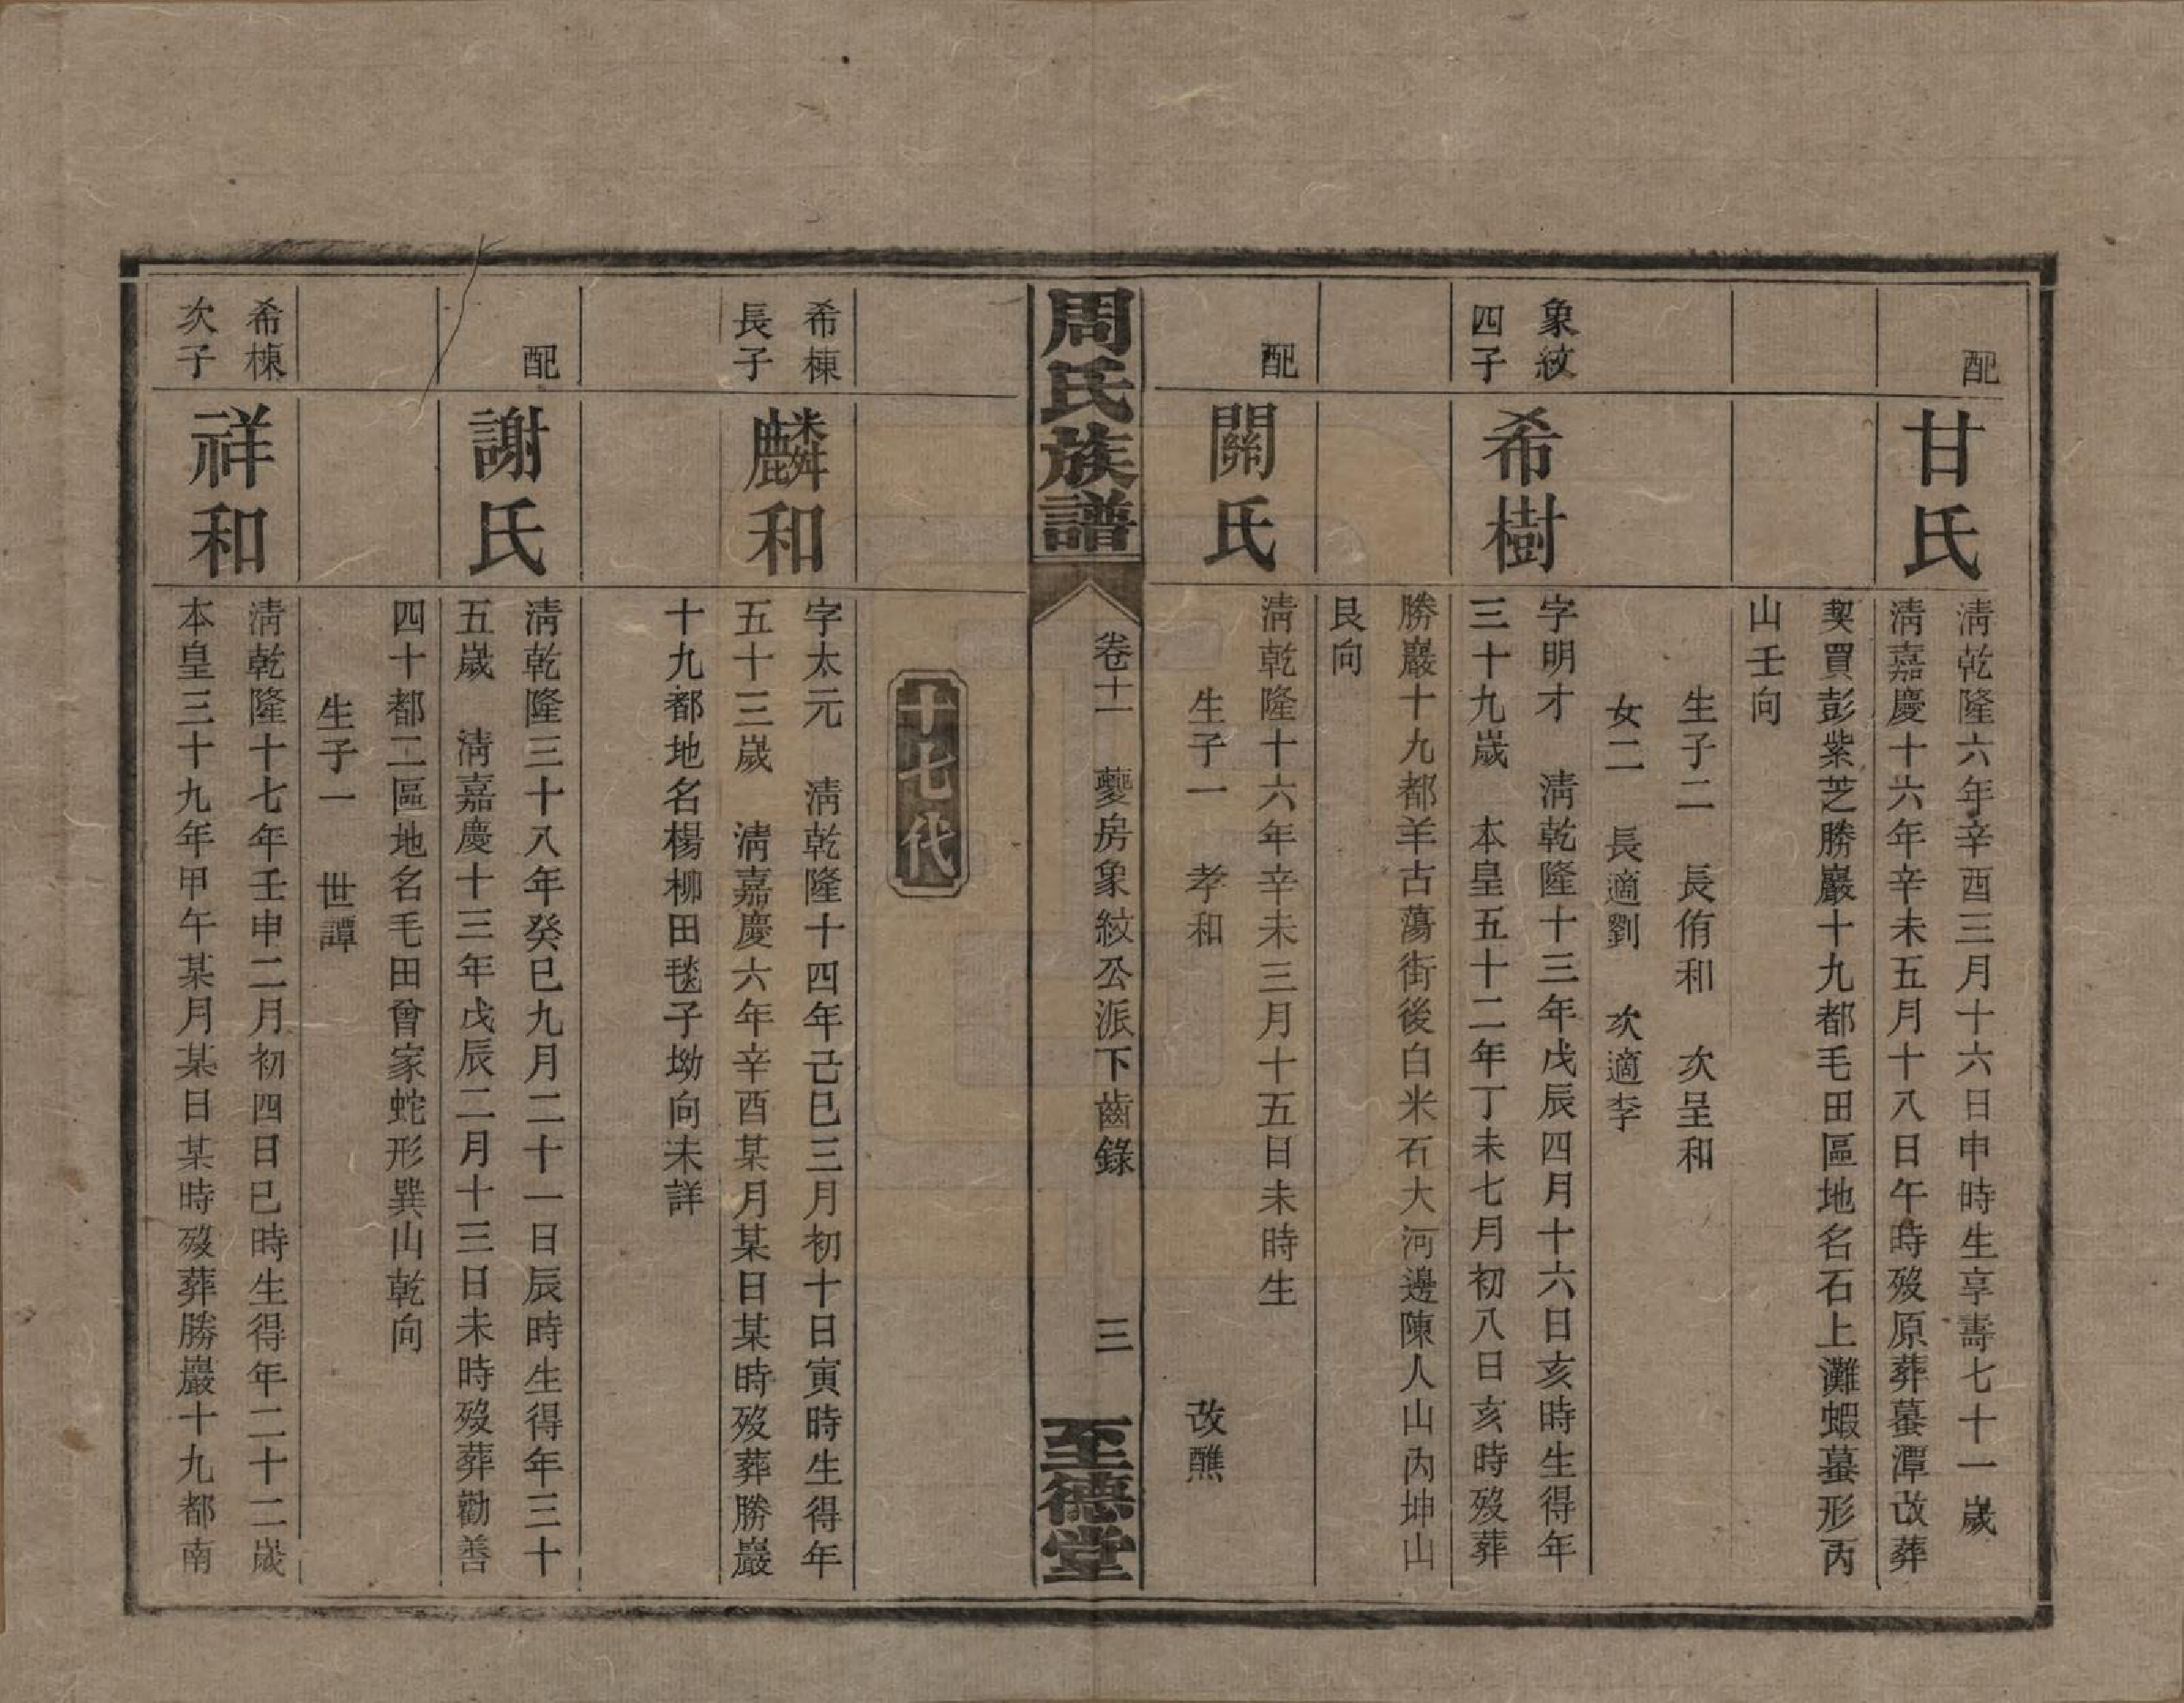 配
甘氏
淸乾隆六年辛酉三月十六日申時生享壽七十一嵗
淸嘉慶十六年辛未五月十八日午時歿原葬蟇潭改葬
契買彭紫芝勝巖十九都毛田區地名石上灘蝦蟇形丙
山壬向
生子二 長侑和 次呈和
女二 長適劉 次適李
象紋
四子
希樹
字明才 淸乾隆十三年戊辰四月十六日亥時生得年
三十九嵗 本皇五十二年丁未七月初八日亥時歿葬
勝巖十九都羊古蕩街後白米石大河邊陳人山內坤山
艮向
配
關氏
淸乾隆十六年辛未三月十五日未時生
生子一 孝和 改醮
周氏族譜
卷十一 夔房象紋公派下齒錄 三
至德堂
十七代
希棟
長子
麟和
字太元 淸乾隆十四年己巳三月初十日寅時生得年
五十三嵗 淸嘉慶六年辛酉某月某日某時歿葬勝巖
十九都地名楊柳田毯子坳向未詳
配
謝氏
淸乾隆三十八年癸巳九月二十一日辰時生得年三十
五嵗 淸嘉慶十三年戊辰二月十三日未時歿葬勸善
四十都二區地名毛田曾家蛇形巽山乾向
生子一 世譚
希棟
次子
祥和
淸乾隆十七年壬申二月初四日巳時生得年二十二嵗
本皇三十九年甲午某月某日某時歿葬勝巖十九都南